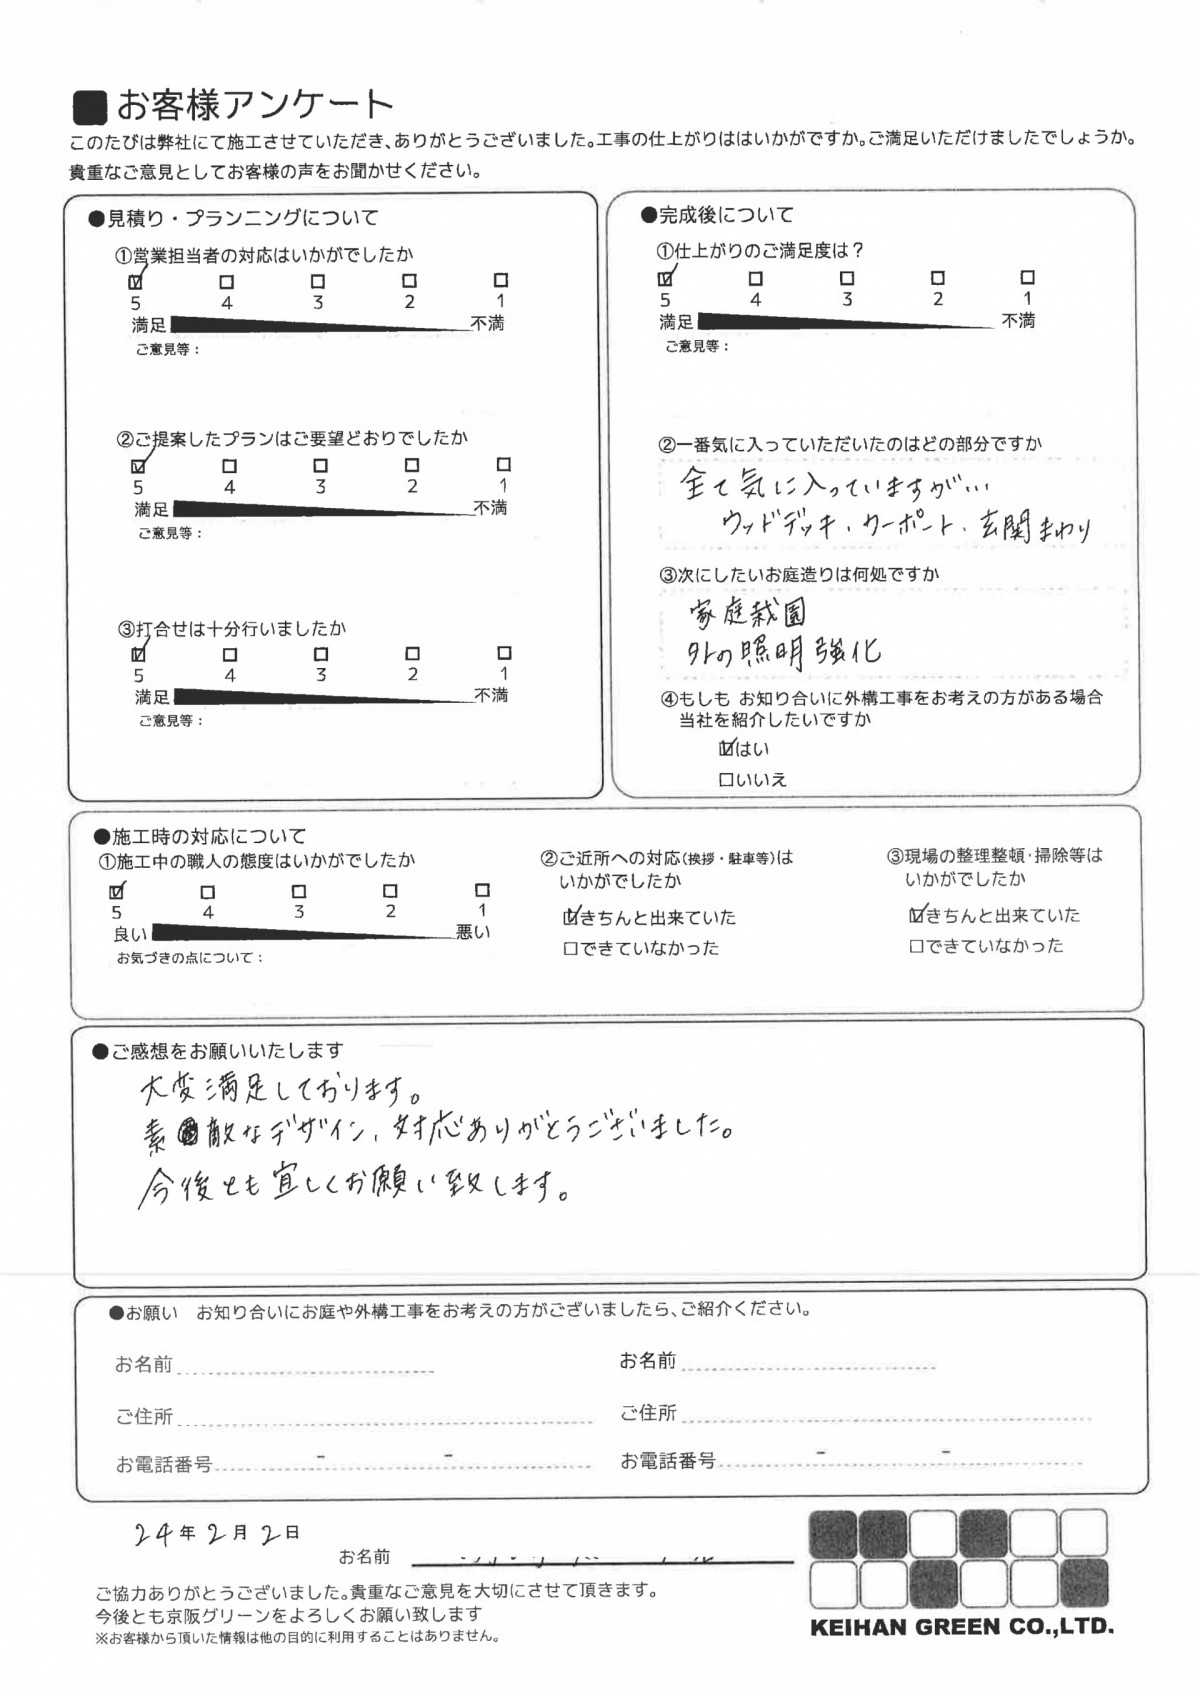 ■お客様アンケート
このたびは弊社にて施工させていただき、ありがとうございました。工事の仕上がりははいかがですか。ご満足いただけましたでしょうか。
貴重なご意見としてお客様の声をお聞かせください。
●見積り・プランニングについて
①営業担当者の対応はいかがでしたか
☑ □ □ □ □
5 4 3 2 1
満足 不満
ご意見等：
②ご提案したプランはご要望どおりでしたか
☑ □ □ □ □
5 4 3 2 1
満足 不満
ご意見等：
③打合せは十分行いましたか
☑ □ □ □ □
5 4 3 2 1
満足 不満
ご意見等：
●完成後について
①仕上がりのご満足度は？
☑ □ □ □ □
5 4 3 2 1
満足 不満
ご意見等：
②一番気に入っていただいたのはどの部分ですか
全て気に入っていますが…
ウッドデッキ・カーポート・玄関まわり
③次にしたいお庭造りは何処ですか
家庭栽園
外の照明強化
④もしも お知り合いに外構工事をお考えの方がある場合
当社を紹介したいですか
☑はい
□いいえ
●施工時の対応について
①施工中の職人の態度はいかがでしたか
☑ □ □ □ □
5 4 3 2 1
良い 悪い
お気づきの点について：
②ご近所への対応(挨拶・駐車等)は
いかがでしたか
☑きちんと出来ていた
□できていなかった
③現場の整理整頓・掃除等は
いかがでしたか
☑きちんと出来ていた
□できていなかった
●ご感想をお願いいたします
大変満足しております。
素敵なデザイン、対応ありがとうございました。
今後とも宜しくお願い致します。
●お願い　お知り合いにお庭や外構工事をお考えの方がございましたら、ご紹介ください。
お名前
ご住所
お電話番号 - -
お名前
ご住所
お電話番号 - -
24年2月2日
お名前
ご協力ありがとうございました。貴重なご意見を大切にさせて頂きます。
今後とも京阪グリーンをよろしくお願い致します
※お客様から頂いた情報は他の目的に利用することはありません。
KEIHAN GREEN CO.,LTD.